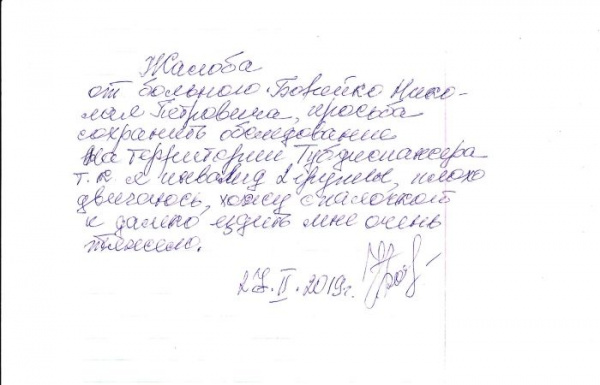 Жалоба
от больного Бовейко Нико-
лая Петровича, просьба
сохранить обследование
на территории Тубдиспансера
т.к. я инвалид 2 группы, плохо
двигаюсь, хожу с палочкой
и далеко ездить мне очень
тяжело.
27.II.2019г.